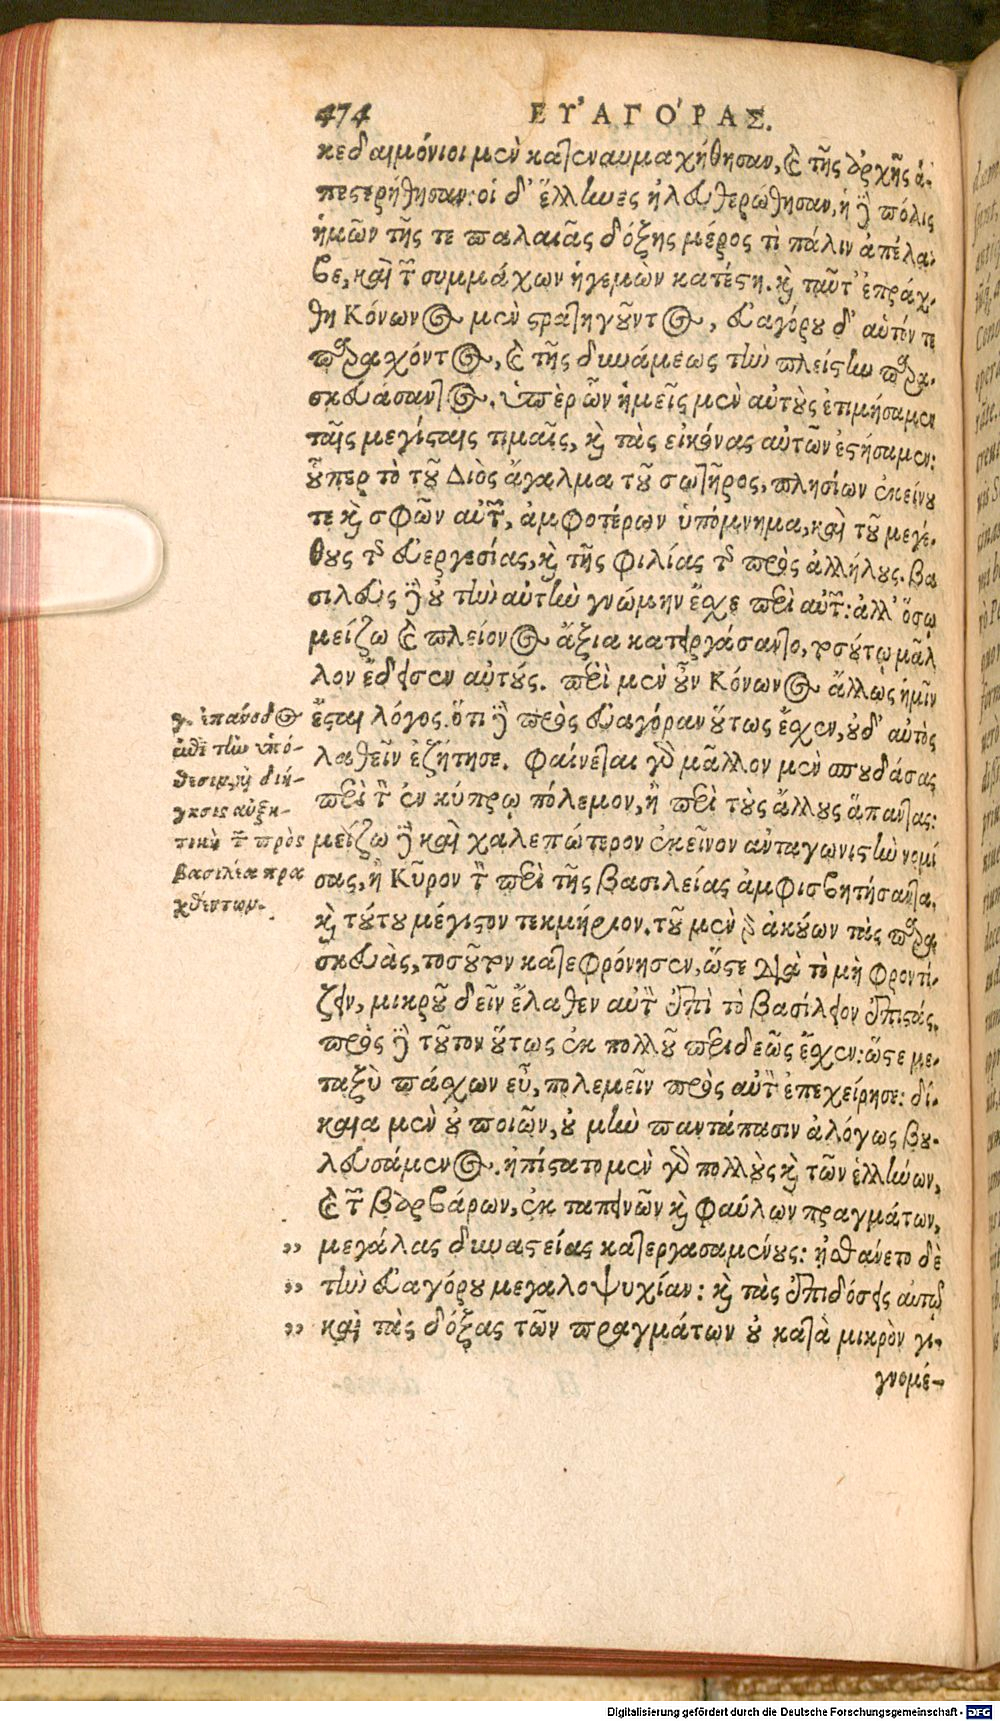 474 ΕΥ᾿ΑΓΟ´ΡΑΣ.
κεδαιμόνιοι μὲν κατεναυμαχήθησαν, καὶ τῆς ἀρχῆς ἀ-
πεστερήθησαν: οἱ δ’ ἕλληνες ἠλευθερώθησαν, ἡ δὲ πόλις
ἡμῶν τῆς τε παλαιᾶς δόξης μέρος τὶ πάλιν ἀπέλα-
βε, καὶ τῶν συμμάχων ἡγεμὼν κατέστη. καὶ ταῦτ’ ἐπράχ-
θη Κόνωνος μὲν στρατηγοῦντος, εὐαγόρου δ’ αὐτόν τε
παραχόντος, καὶ τῆς δυνάμεως τὴν πλείστην παρα-
σκευάσαντος. ὑπὲρ ὧν ἡμεῖς μὲν αὐτοὺς ἐτιμήσαμεν
ταῖς μεγίσταις τιμαῖς, καὶ τὰς εἰκόνας αὐτῶν ἐστήσαμεν:
οὗπερ τὸ τοῦ Διὸς ἄγαλμα τοῦ σωτῆρος, πλησίων ἐκείνου
τε καὶ σφῶν αὐτῶν, ἀμφοτέρων ὑπόμνημα, καὶ τοῦ μεγέ-
θους τῆς εὐεργεσίας, καὶ τῆς φιλίας τῆς πρὸς ἀλλήλους. βα
σιλεὺς δὲ οὐ τὴν αὐτὴν γνώμην ἔχε περὶ αὐτῶν: ἀλλ’ ὅσῳ
μείζω καὶ πλείονος ἄξια κατειργάσαντο, τοσούτῳ μᾶλ
λον ἔδεισεν αὐτούς. περὶ μὲν οὖν Κόνωνος ἄλλως ἡμῖν
ἔσται λόγος. ὅτι δὲ πρὸς εὐαγόραν οὕτως ἔχεν, οὐδ’ αὐτὸς
λαθεῖν ἐζήτησε. Φαίνεται γὰρ μᾶλλον μὲν σπουδάσας
περὶ τὸν ἐν κύπρῳ πόλεμον, ἢ περὶ τοὺς ἄλλους ἅπαντας:
μείζω δὲ καὶ χαλεπώτερον ἐκεῖνον ἀνταγωνιστὴν νομί
σας, ἢ Κῦρον τὸν περὶ τῆς βασιλείας ἀμφισβητήσαντα.
καὶ τούτου μέγιστον τεκμήριον. τοῦ μὲν γὰρ ἀκούων τὰς παρα
σκευὰς, τοσοῦτον κατεφρόνησεν, ὥστε διὰ τὸ μὴ φροντί-
ζειν, μικροῦ δεῖν ἔλαθεν αὐτὸν ἐπὶ τὸ βασίλειον ἐπιστάς.
πρὸς δὲ τοῦτον οὕτως ἐκ πολλοῦ περιδεῶς ἔχεν: ὥστε με-
ταξὺ πάχων εὖ, πολεμεῖν πρὸς αὐτὸν ἐπεχείρησε: δί-
καια μὲν οὐ ποιῶν, οὐ μὴν παντάπασιν ἀλόγως βου-
λευσάμενος. ἠπίστατο μὲν γὰρ πολλοὺς καὶ τῶν ἑλλήνων,
καὶ τῶν βαρβάρων, ἐκ ταπεινῶν καὶ φαύλων πραγμάτων,
„ μεγάλας δυναστείας κατεργασαμένους: ᾐσθάνετο δὲ
„ τὴν εὐαγόρου μεγαλοψυχίαν: καὶ τὰς ἐπιδόσεις αὐτῷ
„ καὶ τὰς δόξας τῶν πραγμάτων οὐ κατὰ μικρὸν γι-
γνομέ-
γ. ἐπάνοδος
ἐπὶ τὴν ὑπό-
θεσιν, καὶ διή-
γησις αὐξη-
τικὴ τῶν πρὸς
βασιλέα πρα
χθέντων.
Digitalisierung gefördert durch die Deutsche Forschungsgemeinschaft - DFG